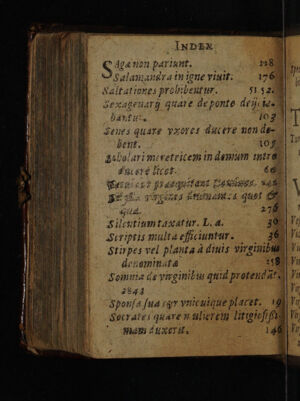 INDEX
Sagæ non pariunt. 128
Salamandra in igne viuit. 176
Saltationes prohibentur. 51 52.
Sexagenarij quare de ponte deijcie-
bantur. 103
Senes quare vxores ducere non de-
bent. 105
Scholari meretricem in domum intro
ducere licet. 60
quæ. 276
Silentium taxatur. L. a. 30
Scriptis multa efficiuntur. 36
Stirpes vel planta à diuis virginibus
denominata 258
Somnia de virginibus quid protendãt.
284 3
Sponsa sua cur vnicuique placet. 19
Socrates quare mulierem litigiosissi-
mam duxerit. 146